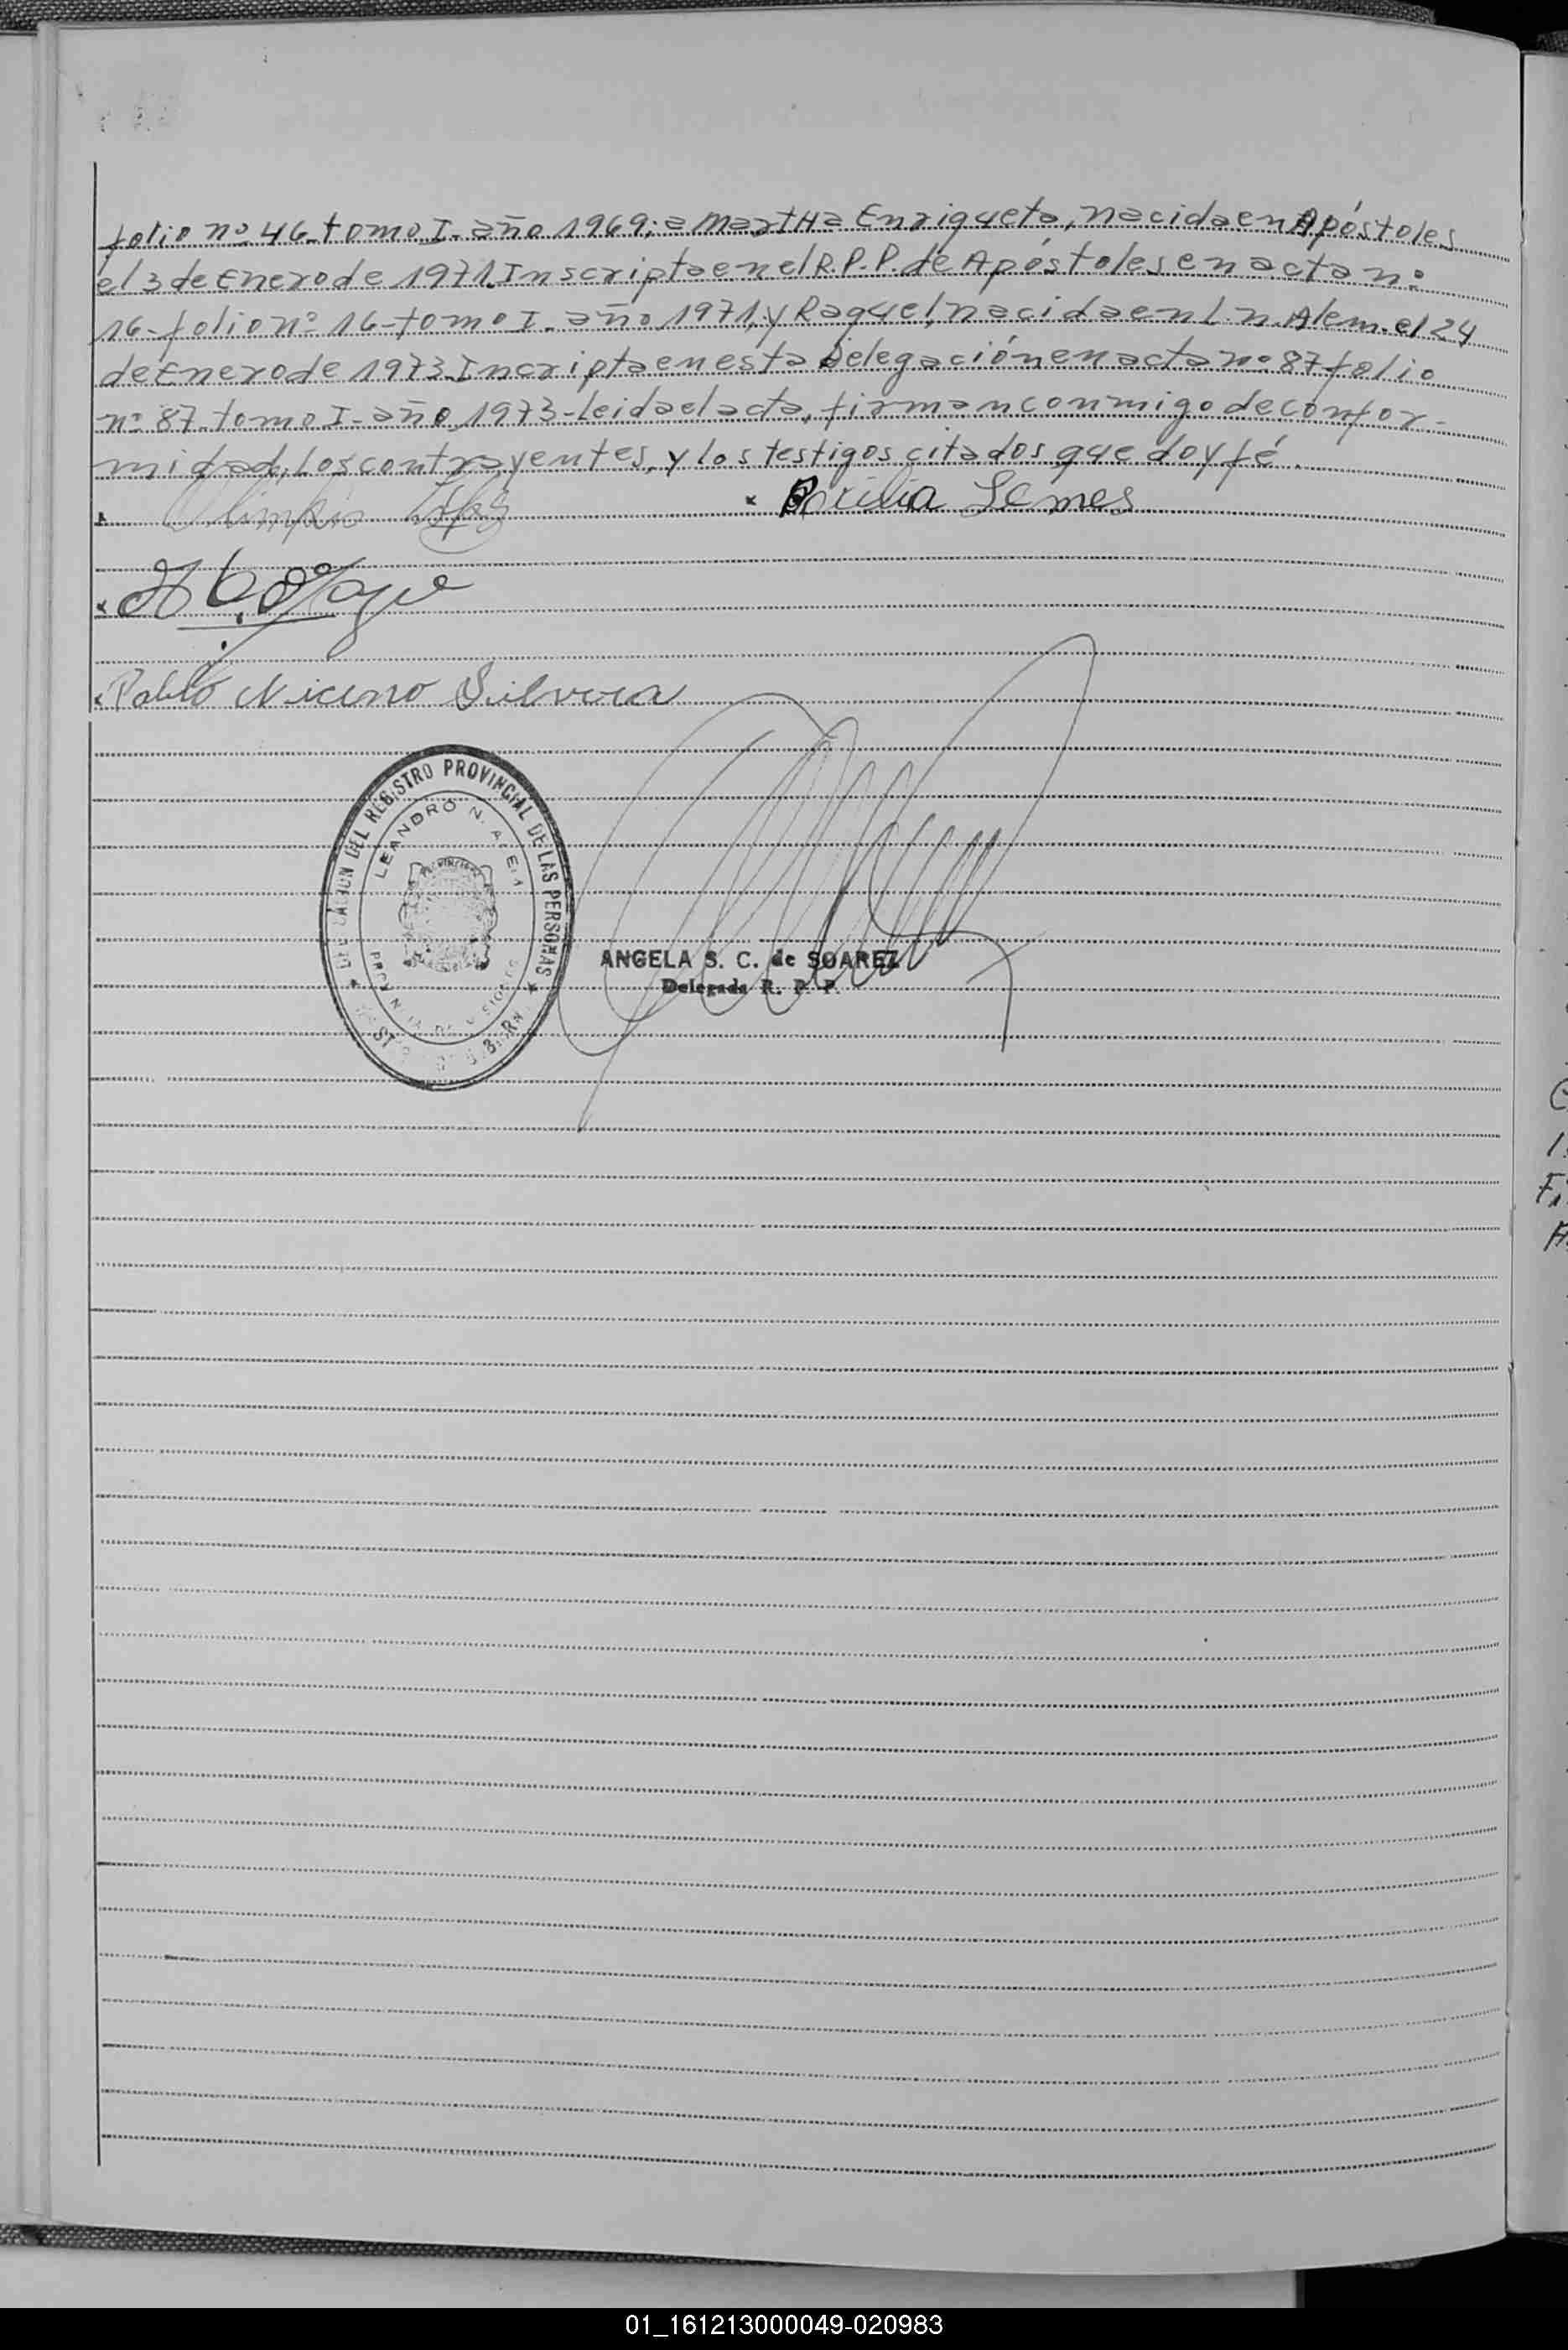 folio nº 46-tomo I-año 1969; a Martha Enriqueta, nacida en Apóstoles
el 3 de Enero de 1971. Inscripta en el R.P.P. de Apóstoles en acta nº
16-folio nº 16-tomo I-año 1971, y Raquel, nacida en L.n. Alem. el 24
de Enero de 1973. Incripta en esta Delegación en acta nº 87 folio
nº 87-tomo I-año 1973-Leida el acta, firman conmigo de confor-
midad, los contrayentes, y los testigos citados que doy fé.
Olimpio
Lemes
Pablo Niceno Silvera
DEL REGISTRO PROVINCIAL DE LAS PERSONAS
LEANDRO N.
ANGELA S. C. de SOAREZ
Delegada R. P. P.
01_161213000049-020983